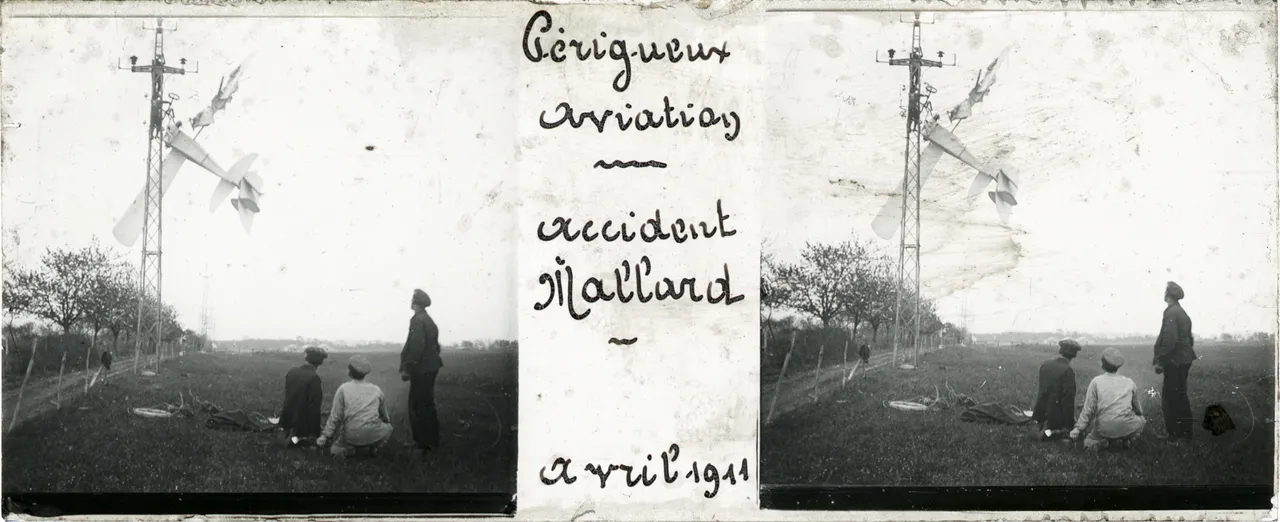 Périgueux
aviation
accident
Mallard
avril 1911